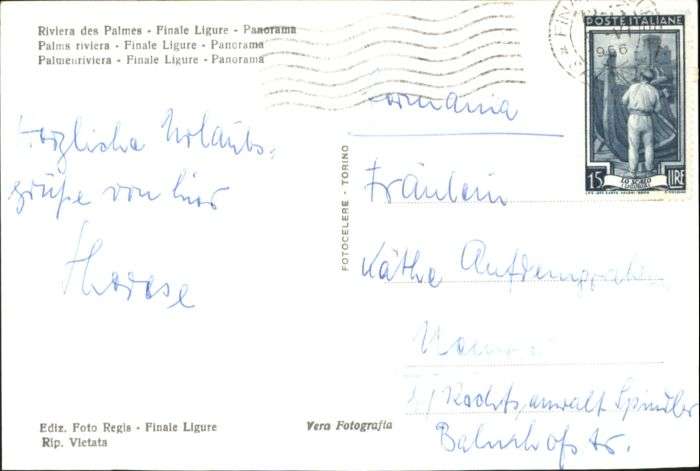 Riviera des Palmes - Finale Ligure - Panorama
Palms riviera - Finale Ligure - Panorama
Palmenriviera - Finale Ligure - Panorama
POSTE ITALIANE
1956
LO SCALO
15 LIRE
Germania
Herzliche Urlaubs-
grüße von hier
Therese
FOTOCELERE - TORINO
Fräulein
Käthe Aufdemgraben
b/ Rechtsanwalt Spindler
Bahnhofstr.
Ediz. Foto Regis - Finale Ligure
Rip. Vietata
Vera Fotografia